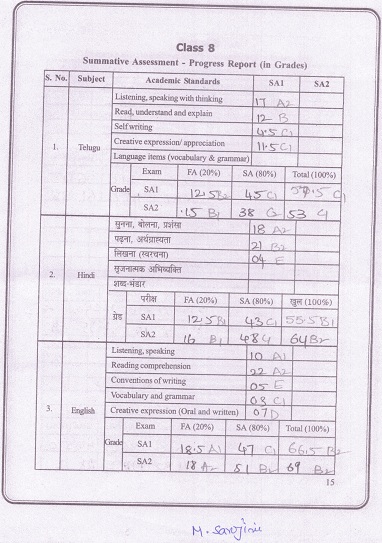 Class 8
Summative Assessment - Progress Report (in Grades)
S. No. Subject Academic Standards SA1 SA2
Listening, speaking with thinking 17 A2
Read, understand and explain 12 B
Self writing 4.5 C1
Creative expression/ appreciation 11.5 C1
Language items (vocabulary & grammar)
1. Telugu
Exam FA (20%) SA (80%) Total (100%)
Grade SA1 12.5 B2 45 C1 57.5 C1
SA2 15 B1 38 C2 53 C1
सुनना, बोलना, प्रशंसा 18 A2
पढ़ना, अर्थग्राह्यता 21 B2
लिखना (स्वरचना) 04 E
सृजनात्मक अभिव्यक्ति
शब्द-भंडार
2. Hindi
परीक्ष FA (20%) SA (80%) कुल (100%)
ग्रेड SA1 12.5 B1 43 C1 55.5 B1
SA2 16 B1 48 C1 64 B2
Listening, speaking 10 A1
Reading comprehension 22 A2
Conventions of writing 05 E
Vocabulary and grammar 03 C1
Creative expression (Oral and written) 07 D
3. English
Exam FA (20%) SA (80%) Total (100%)
Grade SA1 18.5 A1 47 C1 66.5 B2
SA2 18 A2 51 B2 69 B2
15
M. Sarojini